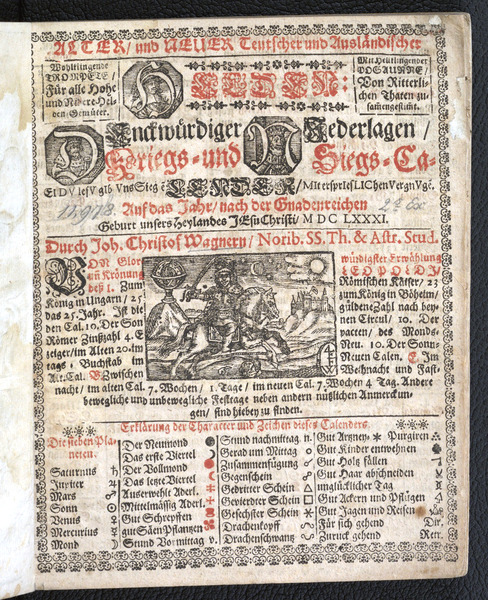 ALTER / und NEUER Teutscher und Ausländischer
Wohlklingende
TROMPETE /
Für alle Hohe
und Nidere Hel-
den-Gemüter.
HELDEN:
Mit Hellklingender
POSAUNE /
Von Ritterli-
chen Thaten zu-
sam̃engestim̃t.
Denckwürdiger Niederlagen /
Kriegs- und Siegs-Ca-
LENTER /
Auf das Jahr / nach der Gnadenreichen
Geburt unsers Heylandes JEsu Christi / M DC LXXXI.
Durch Joh. Christof Wagnern / Norib. SS. Th. & Astr. Stud.
VON Glor
uñ Krönung
deß I. Zum
König in Ungarn / 25
das 25. Jahr. Ist die
den Cal. 10. Der Son
Römer Zinßzahl 4. E
zeiger / im Alten 20. Im
tags, Buchstab im
Alt. Cal. B Zwischen
würdigster Erwählung
LEOPOLDI /
Römischen Käiser / 23
zum König in Böheim /
güldene Zahl nach bey-
nen Circul / 10. Der
pacten / des Monds-
Neu. 10. Der Sonn-
Neuen Calen. E. Im
Weihnacht und Fast-
nacht / im alten Cal. 7. Wochen / 1. Tage / im neuen Cal. 7. Wochen 4 Tag. Andere
bewegliche und unbewegliche Festtage neben andern nützlichen Anmerckun-
gen / sind hiebey zu finden.
Erklärung der Character und Zeichen dieses Calenders.
Die sieben Pla-
neten.
Saturnus ♄
Jupiter ♃
Mars ♂
Sonn ☉
Venus ♀
Mercurius ☿
Mond ☽
Der Neumond
Das erste Viertel
Der Vollmond
Das letzte Viertel
Auserwehlte Aderl.
Mittelmässig Aderl.
Gut Schrepffen
gut Säen Pflantzen
Stund Vormittag v.
Stund nachmittag n.
Gerad um Mittag
Zusammenfügung ☌
Gegenschein ☍
Gedritter Schein △
Gevierdter Schein □
Gesechster Schein ✶
Drachenkopff ☊
Drachenschwantz ☋
Gut Artzney- Purgiren
Gut Kinder entwehnen
Gut Holz fällen
Gut Haar abschneiden
unglücklicher Tag
Gut Ackern und Pflügen
Gut Jagen und Reisen
Für sich gehend Dir.
Zuruck gehend Retr.